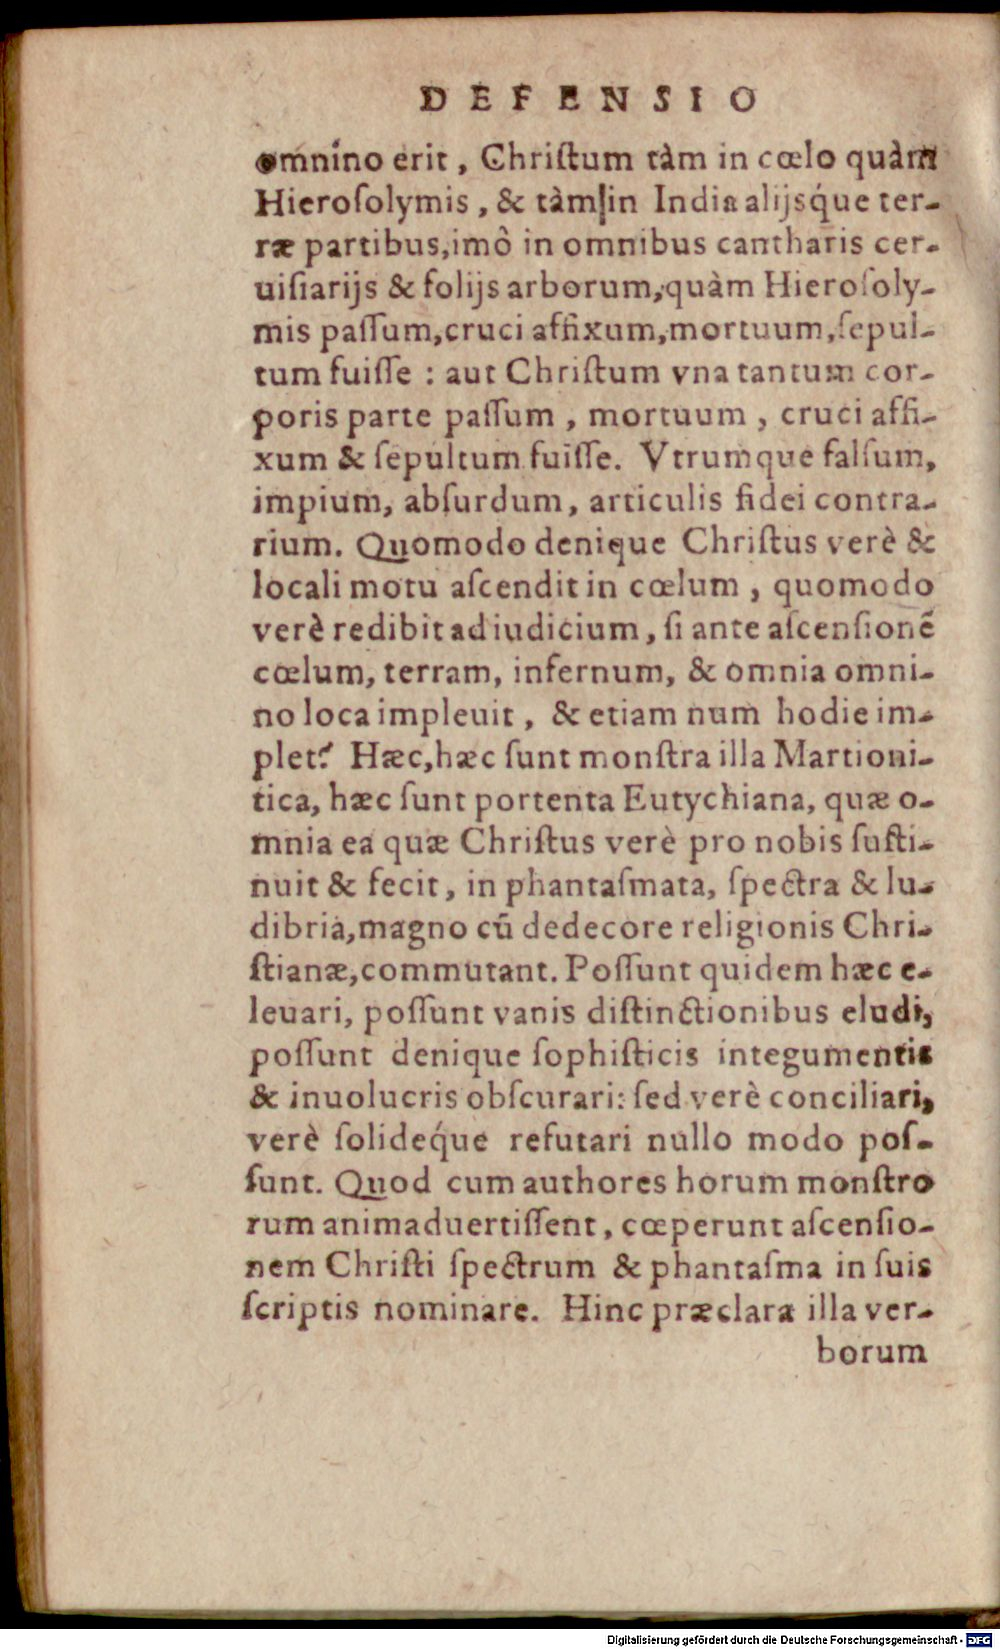 DEFENSIO
omníno erit, Chriſtum tàm in cœlo quàm
Hieroſolymis, & tàm in India alijsq́ue ter-
ræ partibus, imò in omnibus cantharis cer-
uiſiarijs & folijs arborum, quàm Hieroſoly-
mis paſſum, cruci affixum, mortuum, ſepul-
tum fuiſſe : aut Chriſtum vna tantum cor-
poris parte paſſum , mortuum , cruci affi-
xum & ſepultum fuiſſe. Vtrumque falſum,
impium, abſurdum, articulis fidei contra-
rium. Quomodo denique Chriſtus verè &
locali motu aſcendit in cœlum , quomodo
verè redibit ad iudicium, ſi ante aſcenſionẽ
cœlum, terram, infernum, & omnia omni-
no loca impleuit, & etiam num hodie im-
plet? Hæc, hæc ſunt monſtra illa Martioni-
tica, hæc ſunt portenta Eutychiana, quæ o-
mnia ea quæ Chriſtus verè pro nobis ſuſti-
nuit & fecit, in phantaſmata, ſpectra & lu-
dibria, magno cũ dedecore religionis Chri-
ſtianæ, commutant. Poſſunt quidem hæc e-
leuari, poſſunt vanis diſtinctionibus eludi,
poſſunt denique ſophiſticis integumentis
& inuolucris obſcurari: ſed verè conciliari,
verè ſolideq́ue refutari nullo modo poſ-
ſunt. Quod cum authores horum monſtro
rum animaduertiſſent, cœperunt aſcenſio-
nem Chriſti ſpectrum & phantaſma in ſuis
ſcriptis nominare. Hinc præclara illa ver-
borum
Digitalisierung gefördert durch die Deutsche Forschungsgemeinschaft - DFG